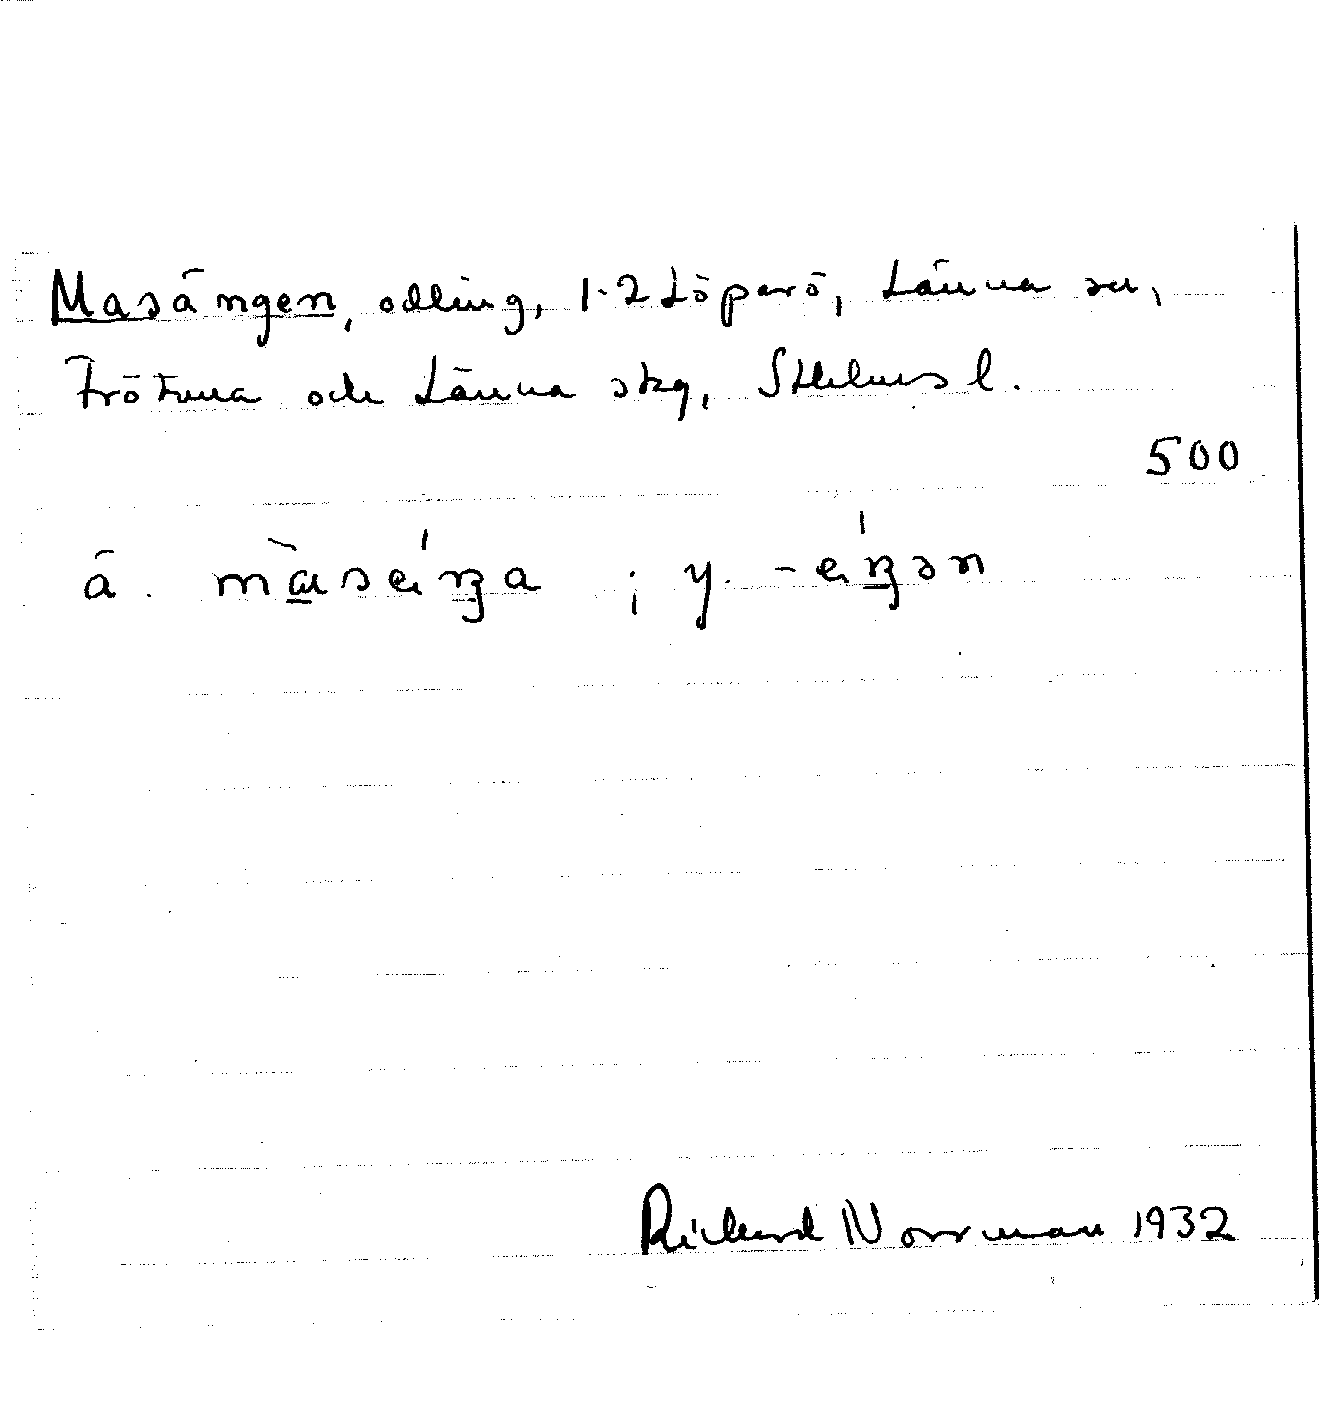 Masängen, odling, 1-2 Löparö, Länna sn,
Frötuna och Länna skg, Sthlms l.
500
ä. ; y.
Rickard Norrman 1932